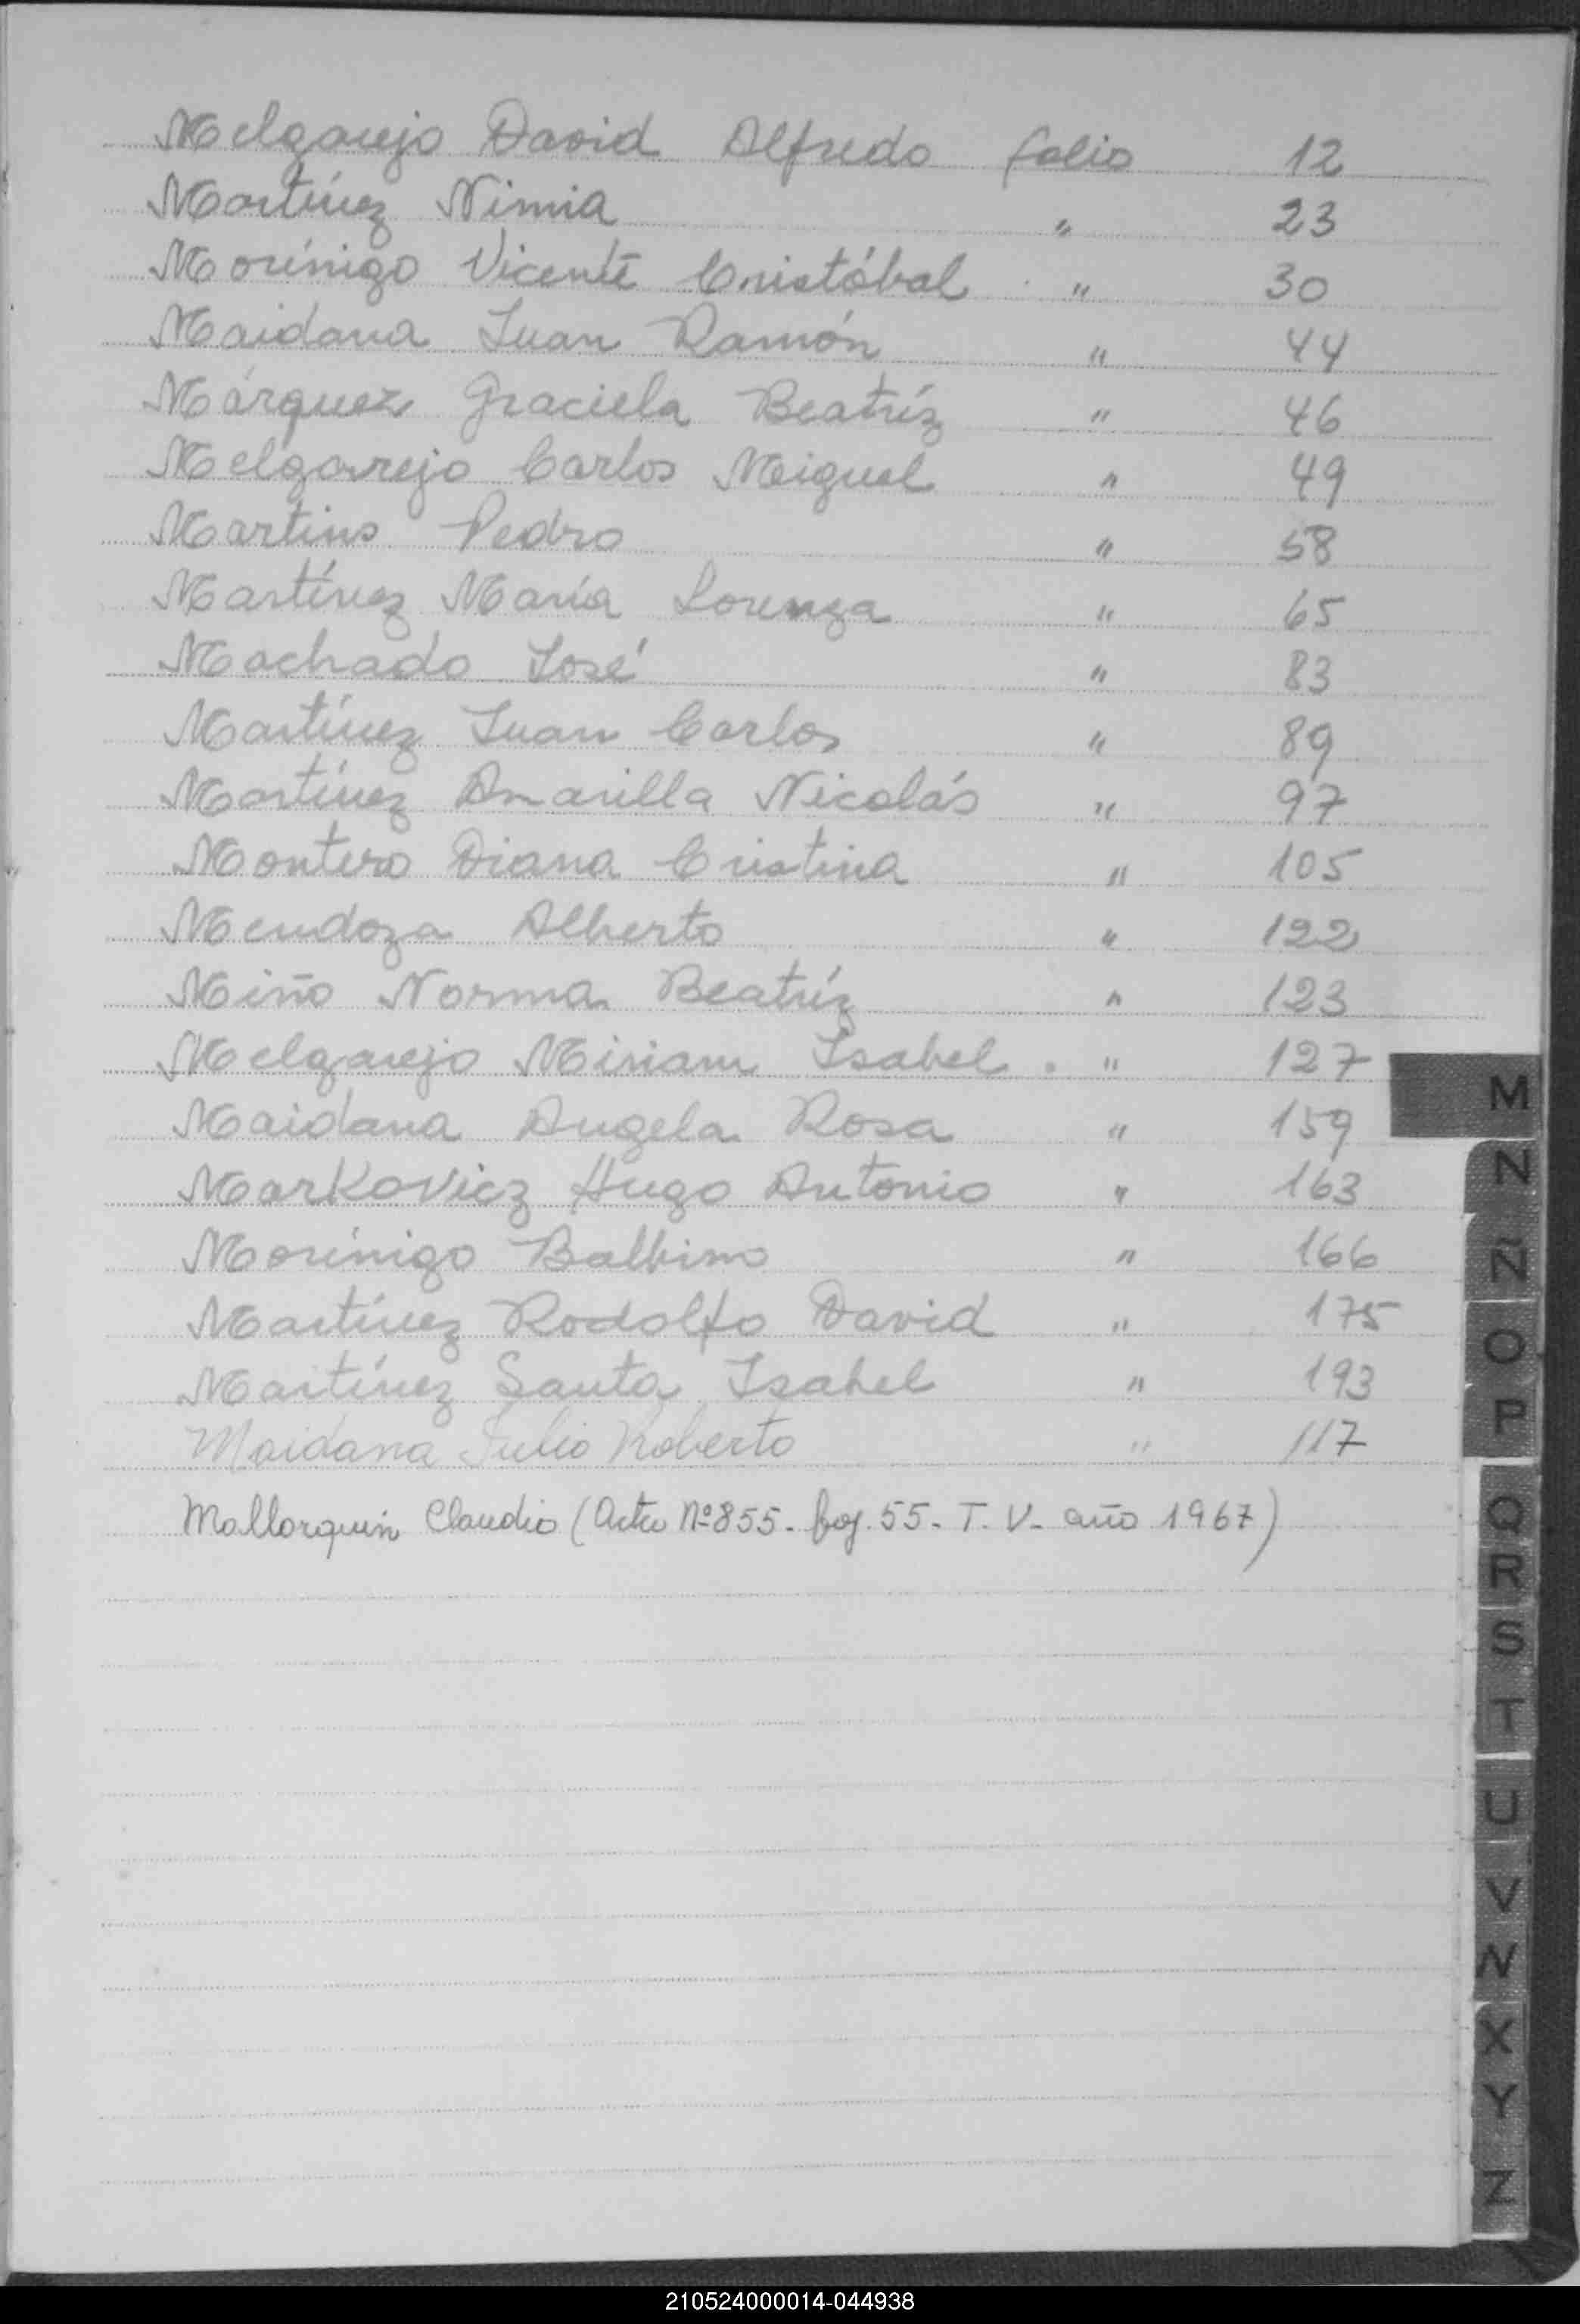 Melgarejo David Alfredo folio 12
Martínez Nimia " 23
Morínigo Vicente Cristóbal " 30
Maidana Juan Ramón " 44
Márquez Graciela Beatríz " 46
Melgarejo Carlos Miguel " 49
Martins Pedro " 58
Martínez María Lorenza " 65
Machado José " 83
Martínez Juan Carlos " 89
Martínez Amarilla Nicolás " 97
Montero Diana Cristina " 105
Mendoza Alberto " 122
Miño Norma Beatríz " 123
Melgarejo Miriam Isabel . " 127
Maidana Angela Rosa " 159
Markovicz Hugo Antonio " 163
Morínigo Balbino " 166
Martínez Rodolfo David " 175
Martínez Santa Isabel " 193
Maidana Julio Roberto " 117
Mallorquin Claudio (Acta Nº 855- foj. 55- T. V- año 1967)
M
N
Ñ
O
P
Q
R
S
T
U
V
W
X
Y
Z
210524000014-044938